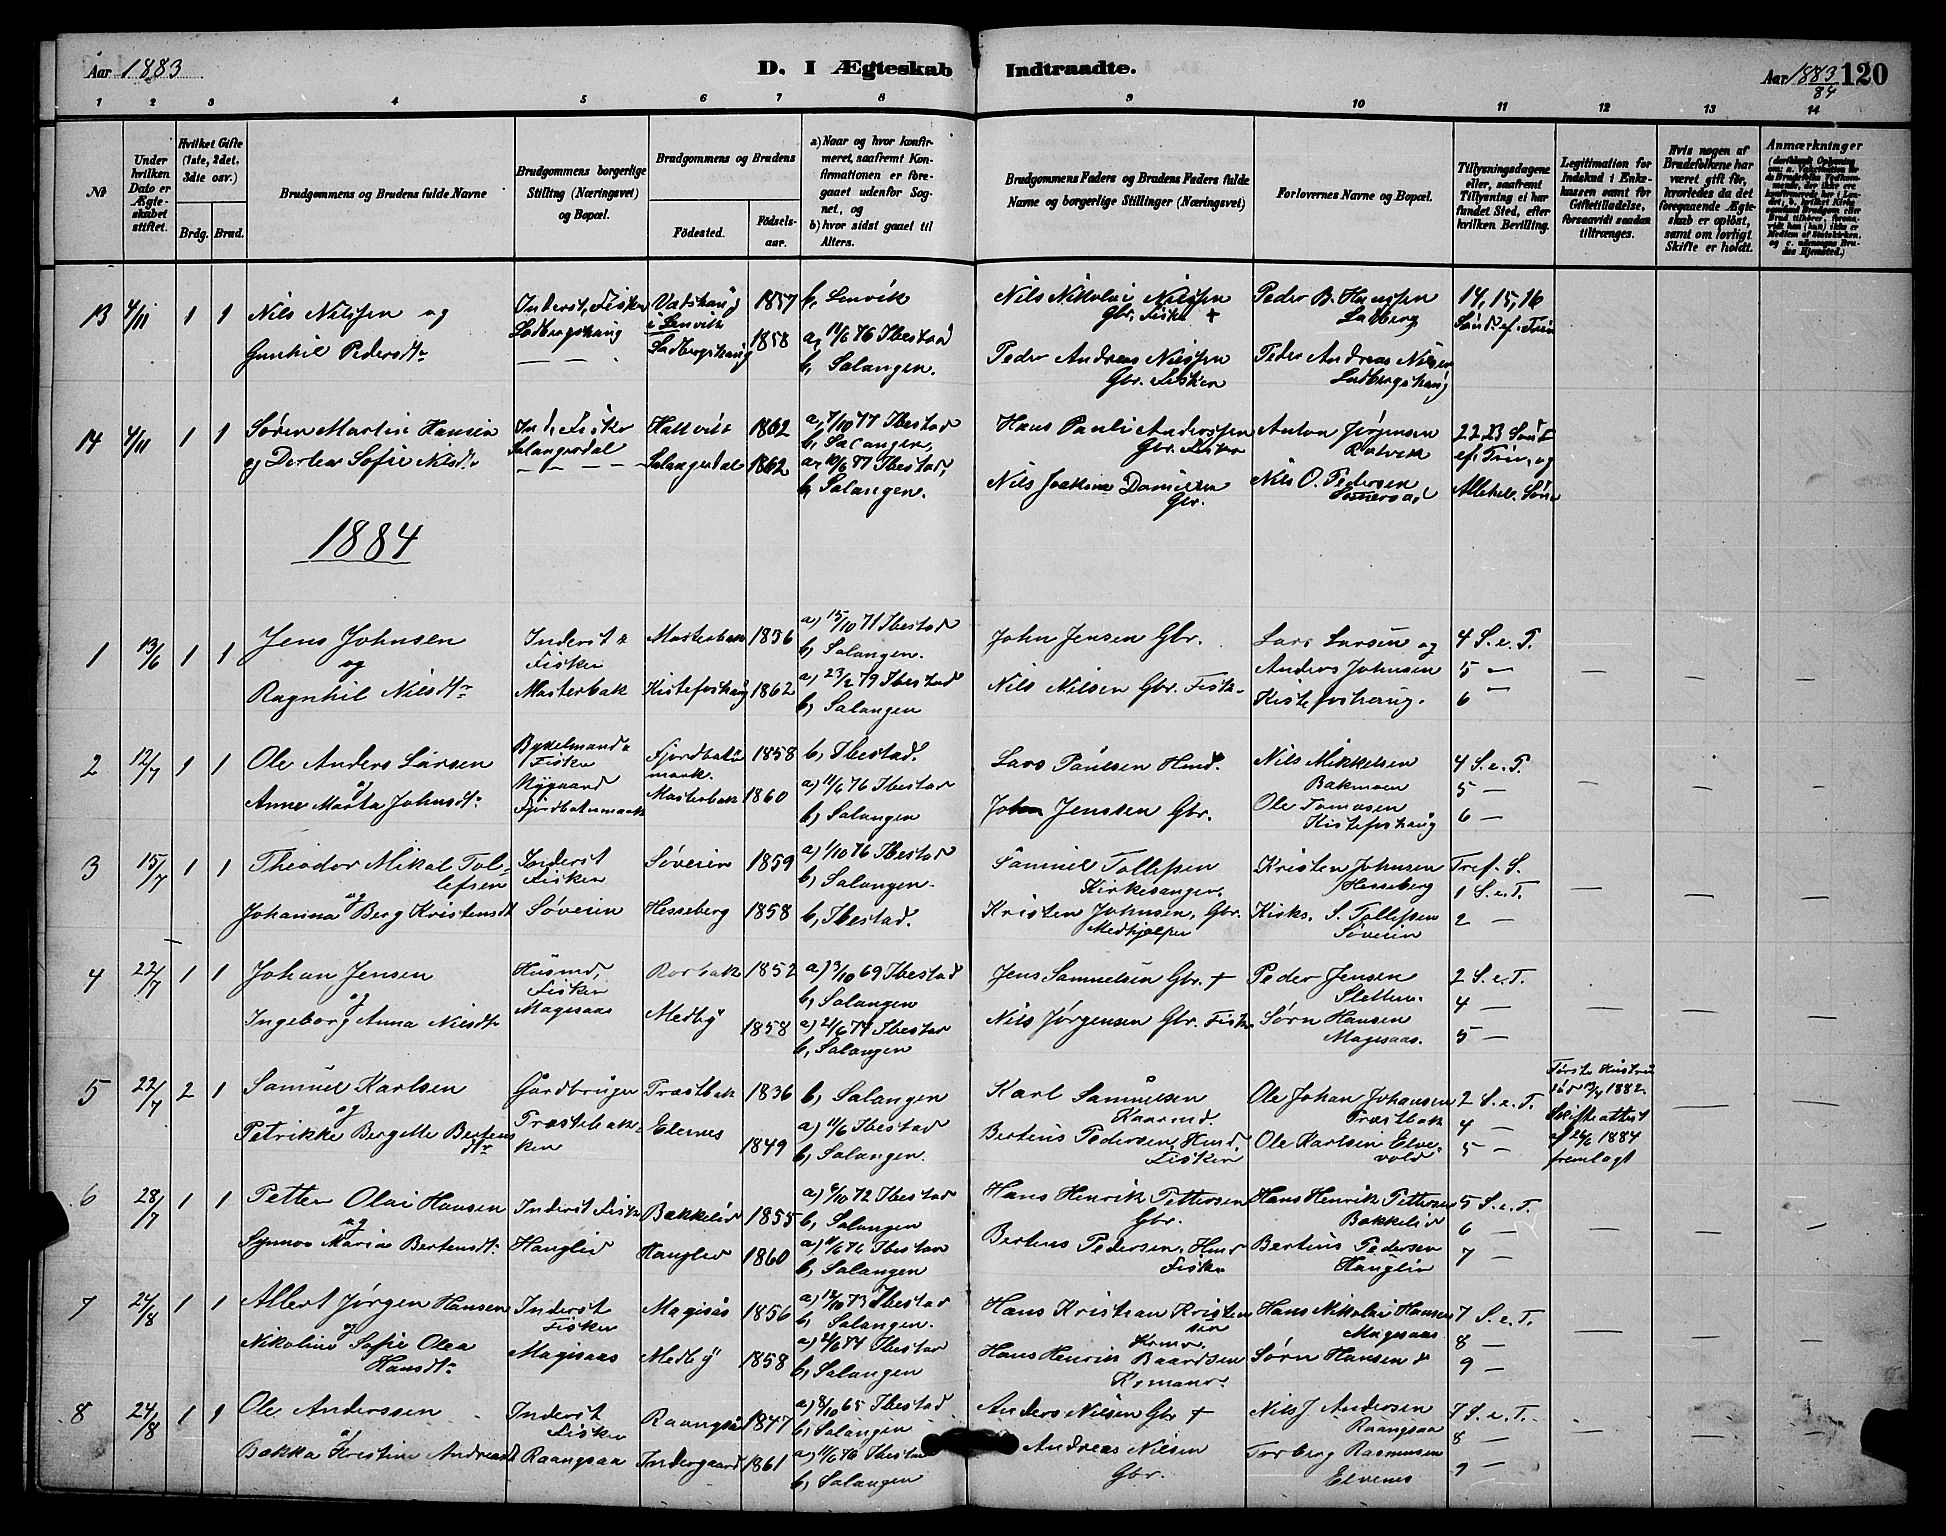 Aar 1883
D. I Ægteskab Indtraadte.
Aar 1883/84 120
1 2 3 4 5 6 7 8 9 10 11 12 13 14
No
Under hvilken Dato er Ægteskabet stiftet.
Hvilket Gifte (1ste, 2det, 3die osv.)
Brdg. Brud.
Brudgommens og Brudens fulde Navne
Brudgommens borgerlige Stilling (Næringsvei) og Bopæl.
Brudgommens og Brudens
Fødested.
Fødselsaar.
a) Naar og hvor konfirmeret, saafremt Konfirmationen er foregaaet udenfor Sognet, og
b) hvor sidst gaaet til Alters.
Brudgommens Faders og Brudens Faders fulde Navne og borgerlige Stillinger (Næringsvei)
Forlovernes Navne og Bopæl.
Tillysningsdagene eller, saafremt Tillysning ei har fundet Sted, efter hvilken Bevilling.
Legitimation for Indskud i Enkekassen samt for Giftetilladelse, forsaavidt saadan tiltrænges.
Hvis nogen af Brudefolkene har været gift før, hvorledes da det foregaaende Ægteskab er opløst, samt om lovligt Skifte er holdt.
Anmærkninger
13 4/11 1 1 Nils Nilssen og Inderst, Fisker 1857 b, Lenvik Nils Nikolai Nilssen Peder B. Hanssen 14, 15, 16
Ladbergshaug i Lenvik Gbr. Fisker + Ladberg Sønd. ef. Trin
Gunhil Pedersdtr — — — Ladbergshaug 1858 a, 11/6 76 Ibestad Peder Andreas Nilssen Peder Andreas Nilsen
b, Salangen. Gbr. Fisker Ladbergshaug
14 4/11 1 1 Søren Martin Hansen Ind. Fisker Hallvik 1862 a, 7/10 77 Ibestad Hans Pauli Anderssen Anton Jørgensen 22, 23 Sønd.
Salangsdal b, Salangen, Gbr. Fisker Rotvik ef. Trin. og
og Dorthea Sofie Nilsdtr — — — Salangsdal 1862 a, 10/6 77 Ibestad, Nils Joakim Danielsen Nils O. Pedersen Allehel. Sønd
b, Salangen. Gbr.
1884
1 13/6 1 1 Jens Johnsen Inderst & Masterbak 1856 a) 15/10 71 Ibestad John Jensen Gbr. Lars Larsen og 4 S. e. T.
og Fisker b, Salangen. Anders Johnsen 5 —
Ragnhil Nilsdtr Masterbak Kistefoshaug 1862 a) 23/2 79 Ibestad Nils Nilsen Gbr. Fisk. Kistefoshaug. 6 — — — —
b, Salangen
2 12/7 1 1 Ole Anders Larsen Bygselmand & Fjordbotn 1858 b, Ibestad. Lars Paulsen Hmd. Nils Mikkelsen 4 S. e. T.
og Fisker mark. Bakmoen 5 — — — —
Nygaard
Anne Marta Johnsdtr Fjordbotnmark Masterbak 1860 a) 11/6 76 Ibestad John Jenssen Gbr. Ole Tomasen 6 —
b, Salangen Kistefoshaug
3 15/7 1 1 Theodor Mikal Tollefsen Inderst Søveien 1859 a) 1/10 76 Ibestad Samuel Tollefsen Kristen Johnsen Tref. S.
og Fisker b, Salangen. Kirkesanger. Hesseberg 1 S. e. T. — — —
Johanna Berg Kristensdt Søveien Hesseberg 1858 b, Ibestad. Kristen Johnsen, Gbr. Kirks. S. Tollefsen 2 —
Medhjælper Søveien
4 22/7 1 1 Johan Jensen Husmd, Rorbak 1852 a) 3/10 69 Ibestad Jens Samuelsen Gbr. + Peder Jensen 2 S. e. T.
og Fisker b, Salangen Sletten. 4 — — — —
Ingeborg Anna Nilsdtr Magesaas Medby 1858 a) 21/6 74 Ibestad Nils Jørgensen Gbr. Fisker Sørn Hansen 5 —
b, Salangen Magesaas.
5 22/7 2 1 Samuel Karlsen Gårdbruger Træstbak 1836 b, Salangen Karl Samuelsen Ole Johan Johansen 2 S. e. T. Første Hustru død 1882.
og Kaarmd. Træstbak 4 — Skifteattest
Petrikke Bergitte Bertens dtr Træstebakken Elvenes 1849 a) 11/6 Ibestad Bertius Pedersen, Hmd. Ole Karlsen Elvevold 5 — af 26/6 1884 fremlagt — —
b, Salangen. Fisker
6 28/7 1 1 Petter Olai Hansen Inderst Fisker Bakkelid 1855 a) 6/10 72 Ibestad Hans Henrik Pettersen Hans Henrik Pettersen 5 S. e. T.
og b, Salangen Gbr. Bakkelid 6 — — — —
Synnøv Maria Bertensdtr Hauglid Hauglid 1860 a) 11/6 76 Ibestad Bertius Pedersen, Hmd Bertius Pedersen 7 —
b, Salangen Fisker Hauglid
7 24/8 1 1 Albert Jørgen Hansen Inderst Magisås 1856 a) 12/10 73 Ibestad Hans Kristian Kristensen Hans Nikolai Hansen 7 S. e. T.
og Fisker b, Salangen. Magesaas 8 — — — —
Nikoline Sofie Olea Hansdtr Magisaas Medby 1858 a) 21/6 74 Ibestad Hans Henrik Baardsen Sørn Hansen 9 —
b, Salangen
8 24/8 1 1 Ole Anderssen Inderst Raangså 1847 a) 8/10 65 Ibestad Anders Nilsen Gbr + Nils J Andersen 7 S. e. T.
og Fisker b, Salangen Raangsaa 8 — — — —
Bakka Kristine Andreasdt Raangsaa Indergaard 1861 a) 11/6 76 Ibestad Andreas Nilsen Torberg Rasmussen 9 —
b, Salangen Gbr. Elvenes